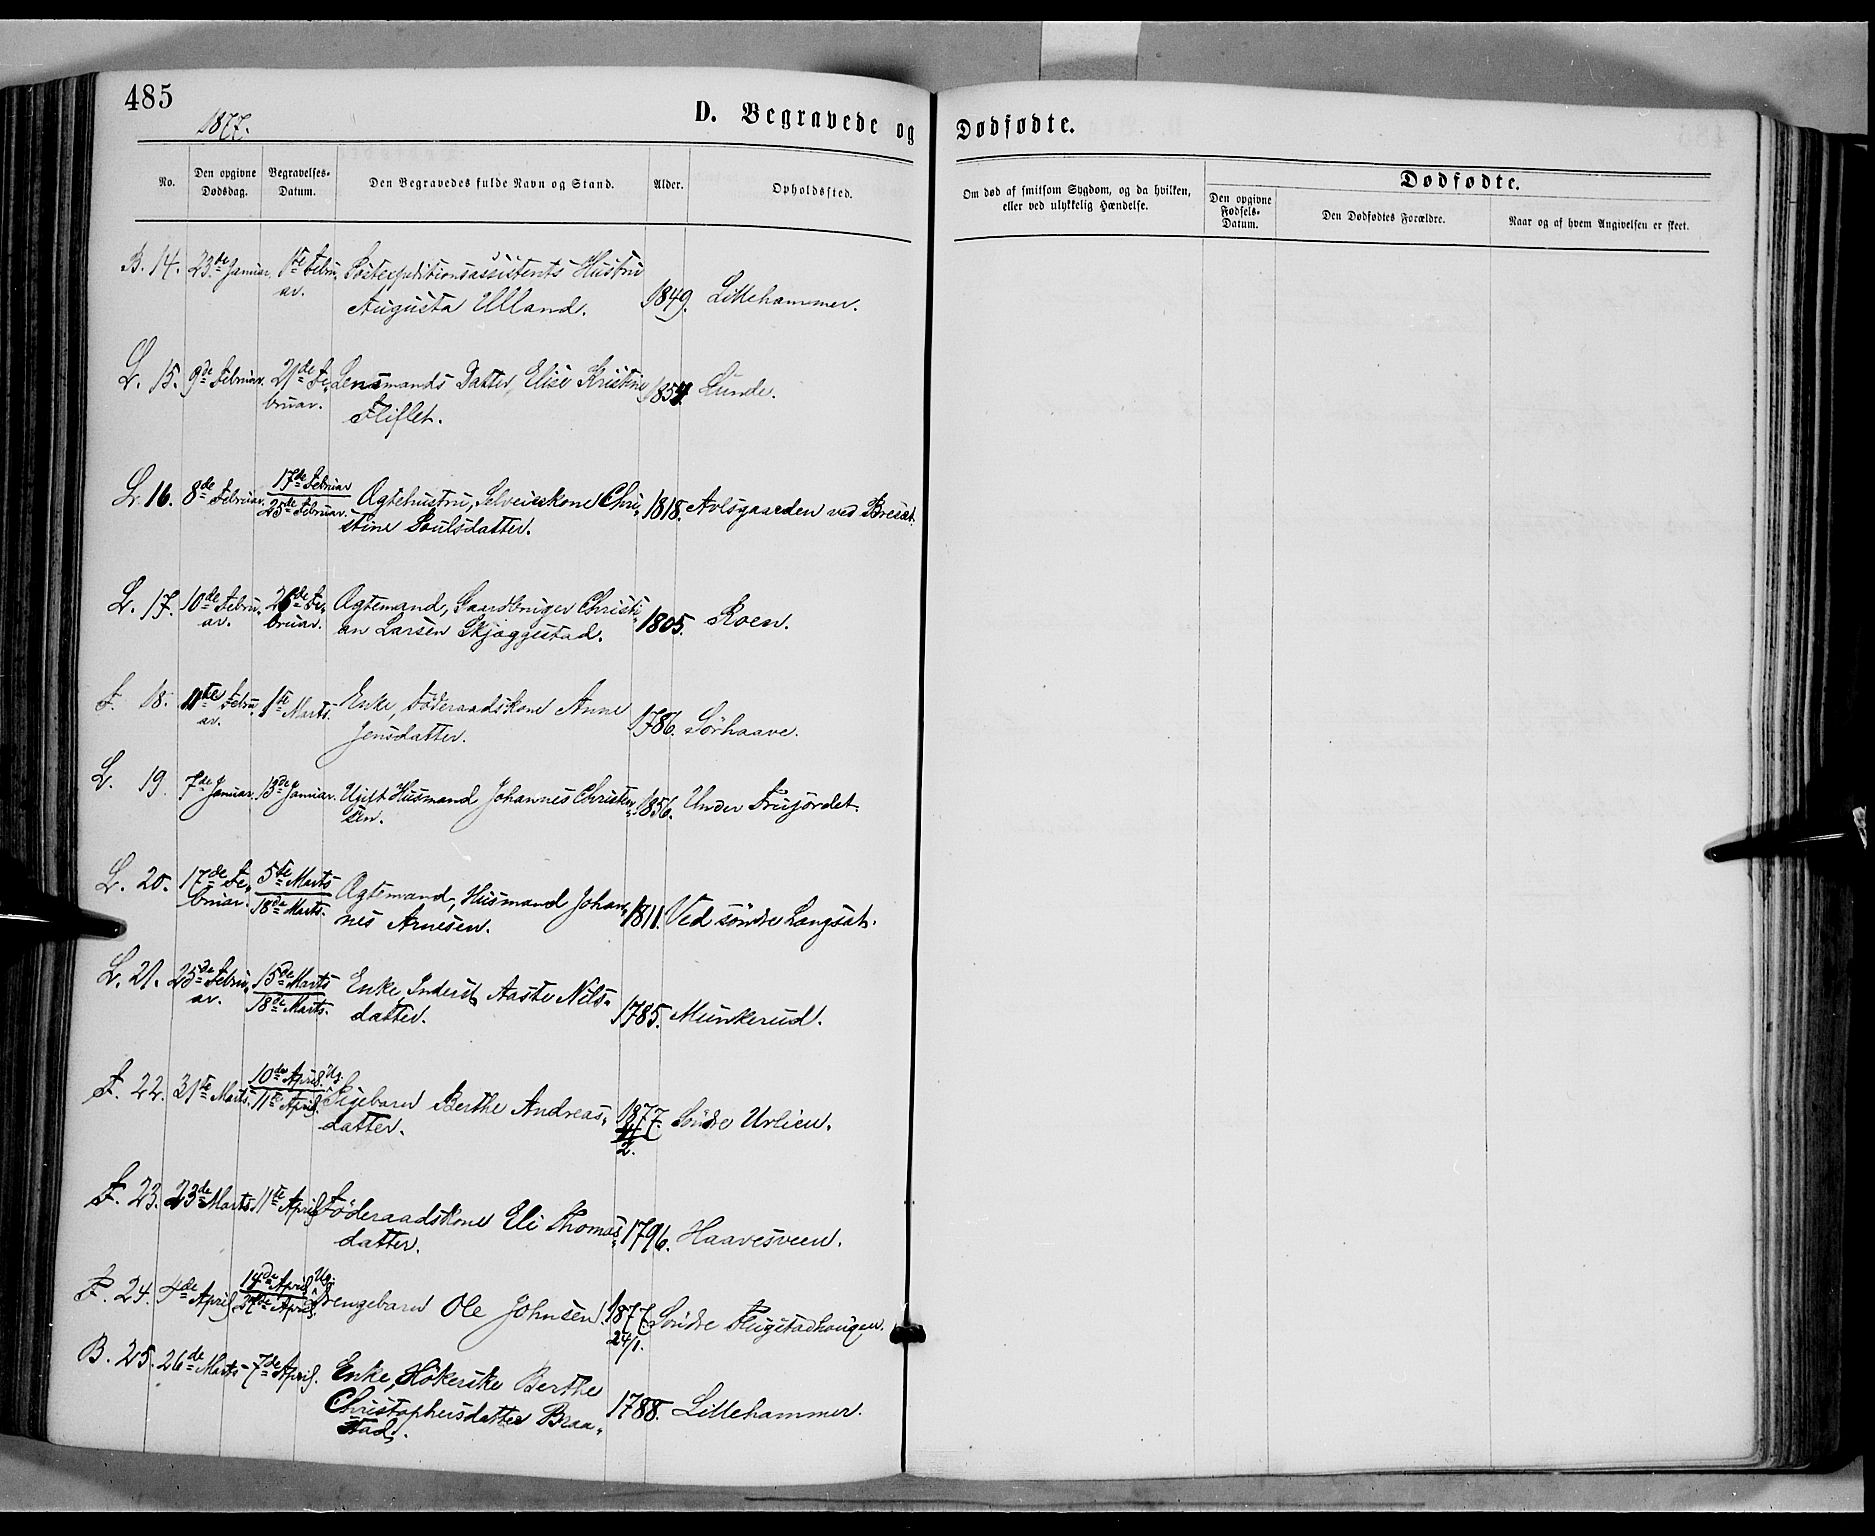 485
1877.
D. Begravede og Dødfødte.
No.
Den opgivne Dødsdag.
Begravelses-Datum.
Den Begravedes fulde Navn og Stand.
Alder.
Opholdssted.
Om død af smitsom Sygdom, og da hvilken, eller ved ulykkelig Hændelse.
Dødfødte.
Den opgivne Fødsels-Datum.
Den Dødfødtes Forældre.
Naar og af hvem Angivelsen er skeet.
B. 14. 23de Januar. 1ste Febru- Postexpeditionsassistents Hustru
ar. Augusta Ulland. 1849. Lillehammer.
L. 15. 9de Februar. 21de Fe- Lensmands Datter, Elise Kristine 1854. Lunde.
bruar. Fliflet.
L. 16. 8de Februar. 17de Februar
25de Februar. Ægtehustru, Selveierkone Chri- 1818. Avlsgaarden ved
stine Poulsdatter.
L. 17. 10de Febru- 26de Fe- Ægtemand, Gaardbruger Christi-
ar. bruar. an Larsen Skjæggestad. 1805. Roen.
F. 18. 11te Febru- 1ste Marts. Enke, Føderaadskone Anne
ar. Jensdatter. 1786. Sørhaave.
L. 19. 7de Januar. 13de Januar. Ugift Husmand Johannes Christen- 1856. Under Frujordet.
sen.
L. 20. 17de Fe- 5te Marts
bruar. 18de Marts. Ægtemand, Husmand Johan-
nes Arnesen. 1811. Ved søndre Langsæt.
L. 21. 25de Febru- 15de Marts
ar. 18de Marts. Enke, Inderst Aaste Nils-
datter. 1785. Munkerud.
F. 22. 31te Marts. 10de April. Ug.
11te April. Pigebarn Berthe Andreas-
datter. 1877 4/2. Søndre Urlien.
F. 23. 23de Marts. 11te April. Føderaadskone Eli Thomas-
datter. 1796. Haavesveen.
F. 24. 4de April. 14de April. Ug.
April. Drengebarn Ole Johnsen. 1877 24/1. Søndre Flugstadhougen.
B. 25. 26de Marts. 7de April. Enke, Høkerske Berthe
Christophersdatter Braa-
stad. 1788. Lillehammer.